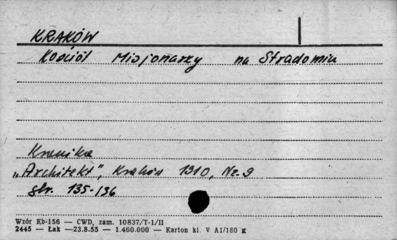 KRAKÓW
Kościół Misjonarzy na Stradomiu
Kronika
"Architekt", Kraków 1910, Nr. 9
str. 135-136
Wzór Kb-156 — CWD, zam. 10837/T-1/II
2445 — Łak —23.8.55 — 1.460.000 — Karton kl. V A1/180 g